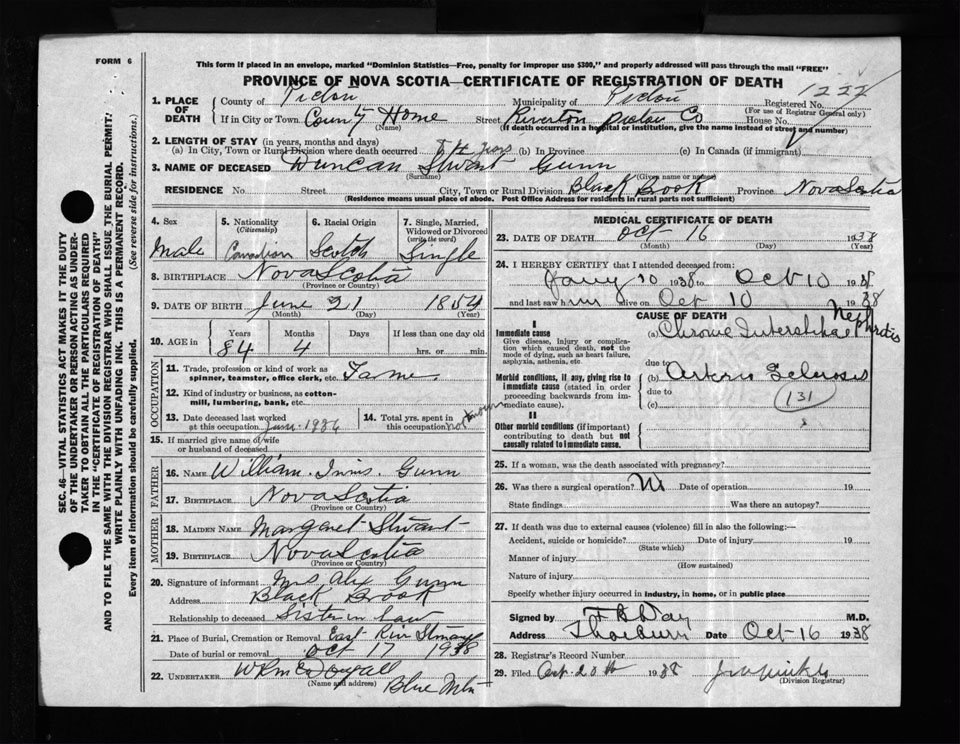 FORM 6
This form if placed in an envelope, marked "Dominion Statistics—Free, penalty for improper use $300," and properly addressed will pass through the mail "FREE"
PROVINCE OF NOVA SCOTIA—CERTIFICATE OF REGISTRATION OF DEATH
1222
1. PLACE OF DEATH County of Pictou Municipality of Pictou Registered No.
(For use of Registrar General only)
If in City or Town County Home Street Riverton Pictou Co House No.
(Name) (If death occurred in a hospital or institution, give the name instead of street and number)
2. LENGTH OF STAY (in years, months and days)
(a) In City, Town or Rural Division where death occurred (b) In Province (c) In Canada (if immigrant)
3. NAME OF DECEASED Duncan Stuart Gunn
(Surname) (Given name or names)
RESIDENCE No. Street City, Town or Rural Division Black Brook Province Nova Scotia
(Residence means usual place of abode. Post Office Address for residents in rural parts not sufficient)
SEC. 46—VITAL STATISTICS ACT MAKES IT THE DUTY
OF THE UNDERTAKER OR PERSON ACTING AS UNDER-
TAKER TO OBTAIN ALL THE PARTICULARS REQUIRED
IN THE "CERTIFICATE OF REGISTRATION OF DEATH"
AND TO FILE THE SAME WITH THE DIVISION REGISTRAR WHO SHALL ISSUE THE BURIAL PERMIT:
WRITE PLAINLY WITH UNFADING INK. THIS IS A PERMANENT RECORD.
Every item of information should be carefully supplied. (See reverse side for instructions.)
4. Sex 5. Nationality 6. Racial Origin 7. Single, Married,
(Citizenship) Widowed or Divorced
(write the word)
Male Canadian Scotch Single
8. BIRTHPLACE Nova Scotia
(Province or Country)
9. DATE OF BIRTH June 21 1854
(Month) (Day) (Year)
10. AGE in Years Months Days If less than one day old
84 4 hrs. or min.
OCCUPATION
11. Trade, profession or kind of work as
spinner, teamster, office clerk, etc.
12. Kind of industry or business, as cotton-
mill, lumbering, bank, etc.
13. Date deceased last worked 14. Total yrs. spent in
at this occupation June 1936 this occupation not known
15. If married give name of wife
or husband of deceased
FATHER
16. NAME William Innis Gunn
17. BIRTHPLACE Nova Scotia
(Province or Country)
MOTHER
18. MAIDEN NAME Margaret Stuart
19. BIRTHPLACE Nova Scotia
(Province or Country)
20. Signature of informant Mrs Alex Gunn
Address Black Brook
Relationship to deceased Sister in law
21. Place of Burial, Cremation or Removal East River St Marys
Date of burial or removal Oct 17 1938
22. UNDERTAKER W R McDougall
(Name and address) Blue Mtn
MEDICAL CERTIFICATE OF DEATH
23. DATE OF DEATH Oct 16 1938
(Month) (Day) (Year)
24. I HEREBY CERTIFY that I attended deceased from:
Jany 10 1938 to Oct 10 1938
and last saw him alive on Oct 10 1938
CAUSE OF DEATH
I
Immediate cause (a) Chronic Interstitial Nephritis
Give disease, injury or complication
which caused death, not the
mode of dying, such as heart failure,
asphyxia, asthenia, etc.
due to
Morbid conditions, if any, giving rise to (b) Arterio Sclerosis
immediate cause (stated in order due to
proceeding backwards from im- (c)
mediate cause). 131
II
Other morbid conditions (if important)
contributing to death but not
causally related to immediate cause.
25. If a woman, was the death associated with pregnancy?
26. Was there a surgical operation? No Date of operation 19
State findings Was there an autopsy?
27. If death was due to external causes (violence) fill in also the following:—
Accident, suicide or homicide? Date of injury 19
(State which)
Manner of injury
(How sustained)
Nature of injury
Specify whether injury occurred in industry, in home, or in public place
Signed by F B Day M.D.
Address Thorburn Date Oct-16 1938
28. Registrar's Record Number
29. Filed Oct. 20th 1938
(Division Registrar)